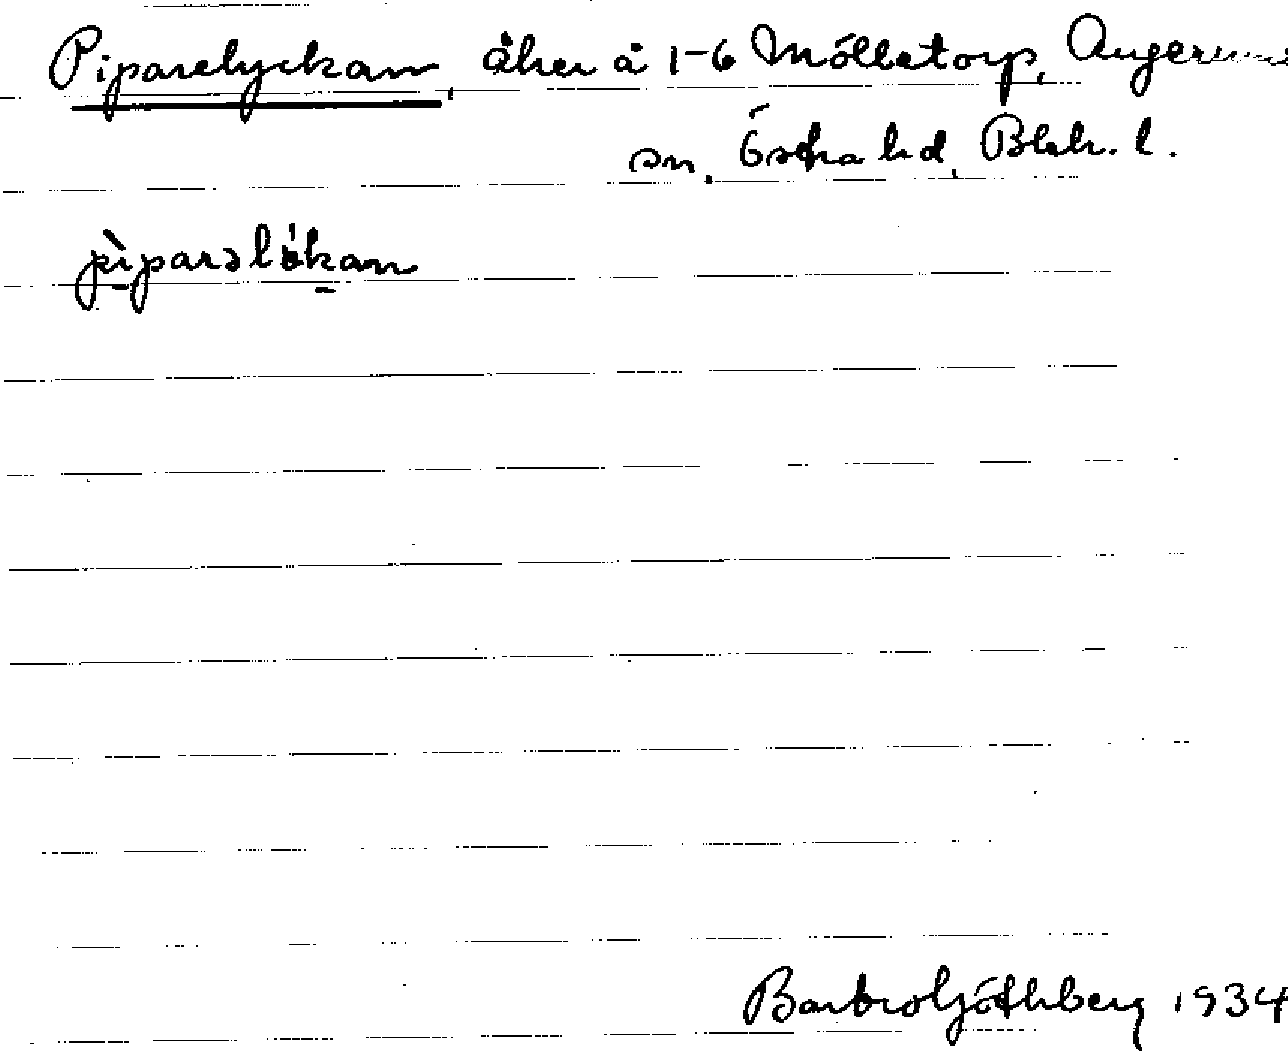 Piparelyckan, åker å 1-6 Möllatorp, Augerums
sn. Östra hd, Blek. l.
pìparəlökan
Barbro Göthberg 1934